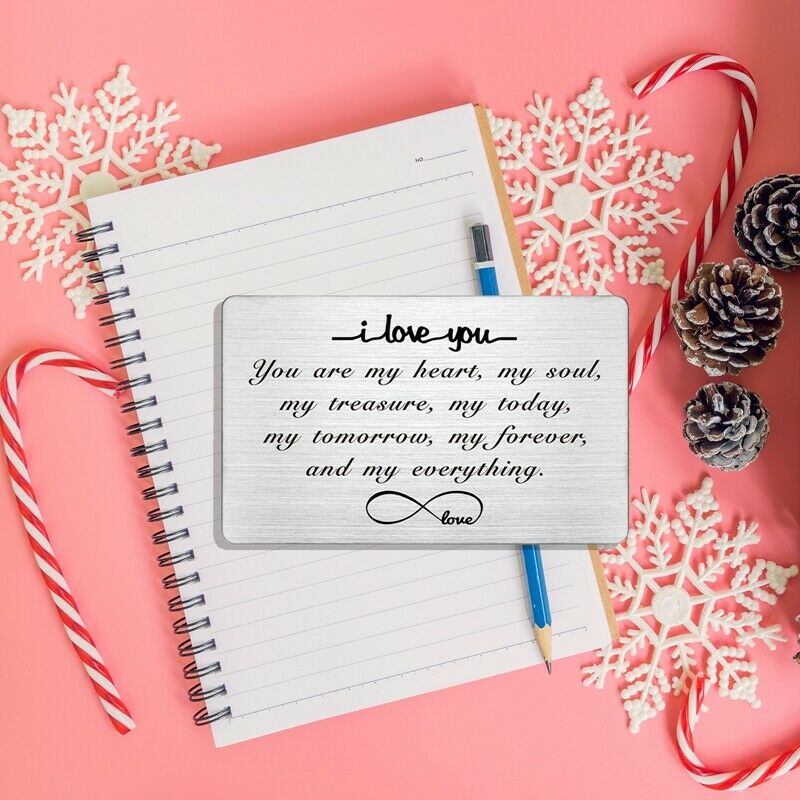 NO.
i love you
You are my heart, my soul,
my treasure, my today,
my tomorrow, my forever,
and my everything.
love